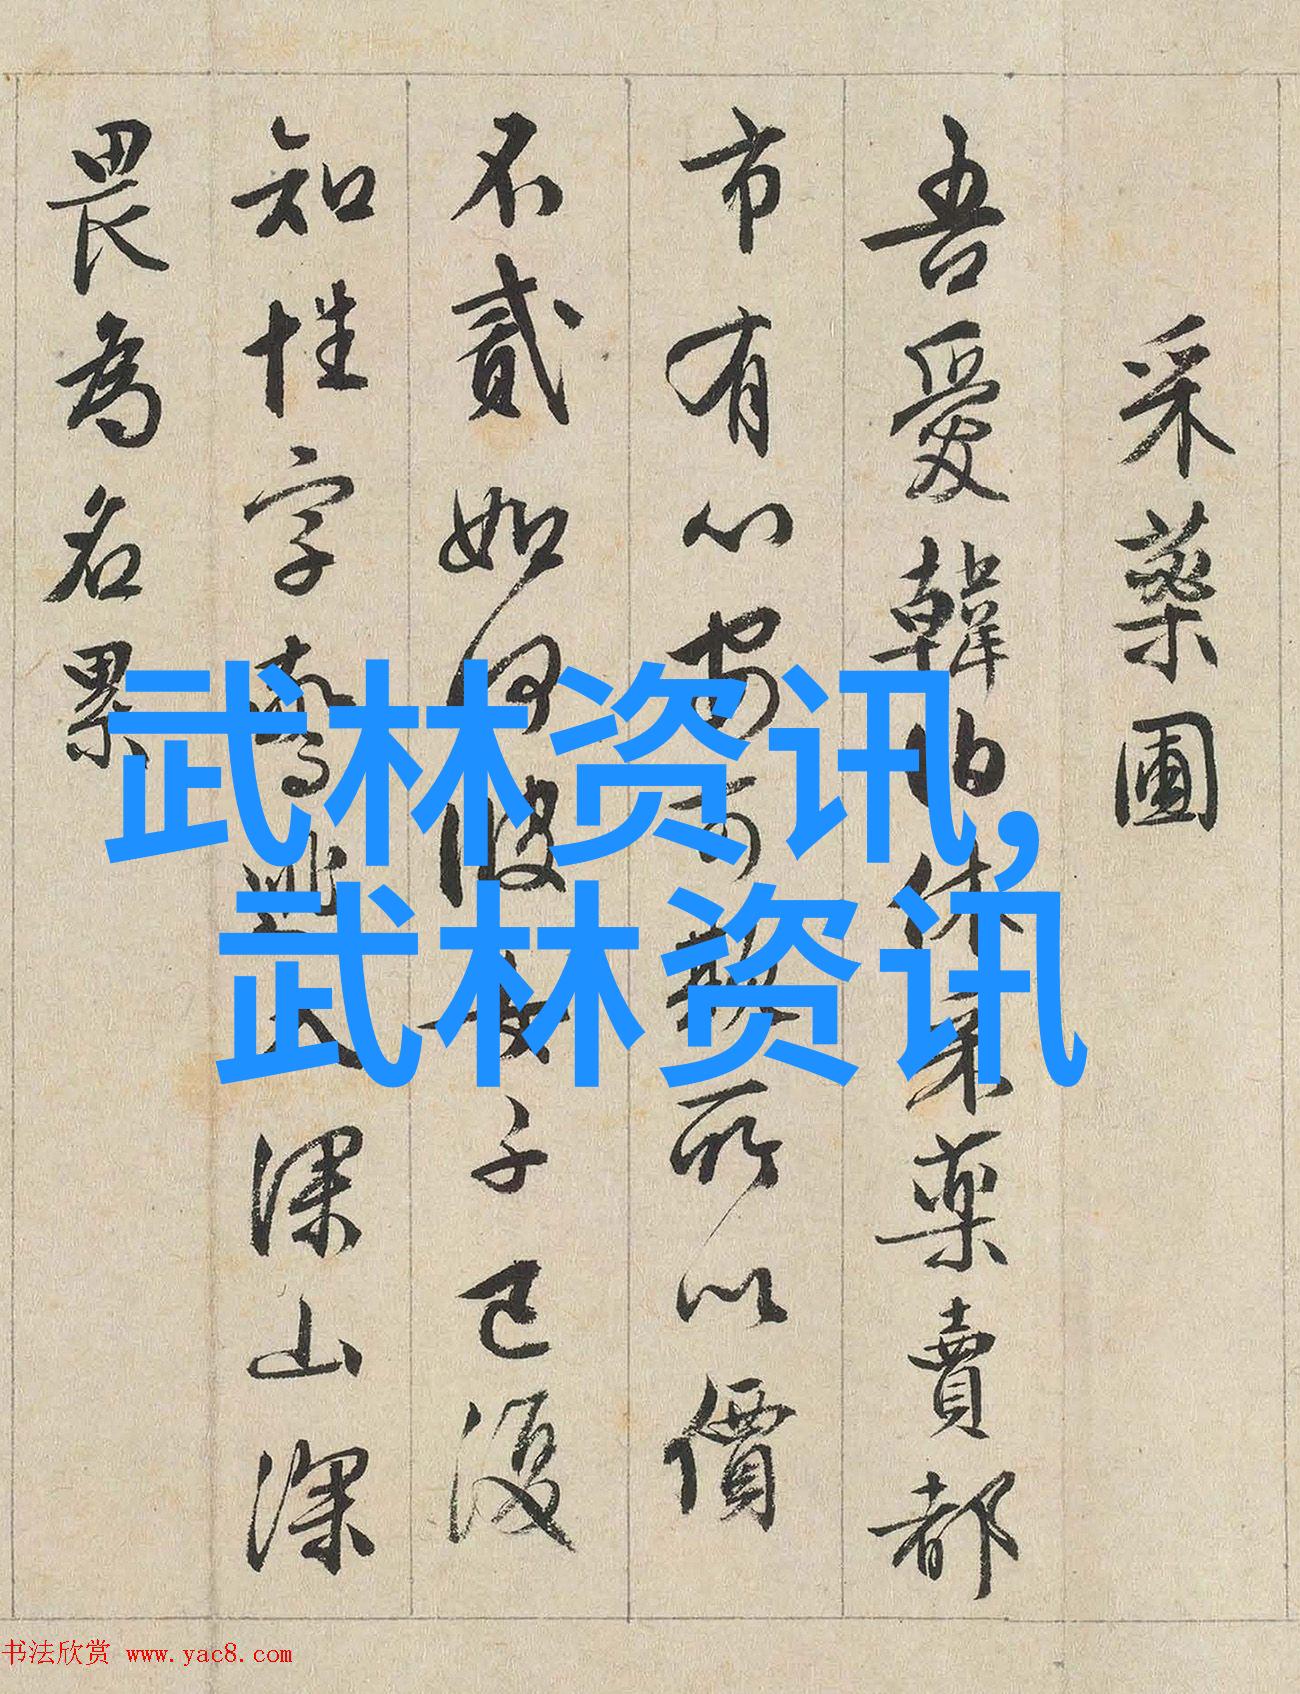 采藥圃
吾愛韓伯休采藥賣都
市有心安可欺所以價
不貳如何彼女子已復
知姓字驚逃入深山深
畏為名累
武林资讯,
武林资讯
书法欣赏 www.yac8.com